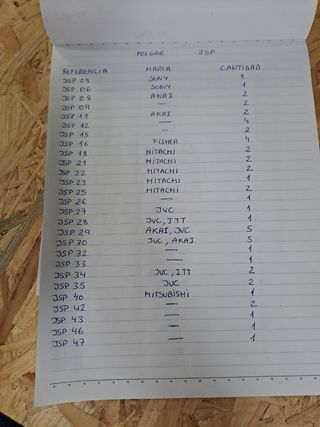 MELGAR JSP
REFERENCIA MARCA CANTIDAD
JSP 05 SONY 1
JSP 06 SONY 1
JSP 08 AKAI 2
JSP 09 — 2
JSP 11 AKAI 2
JSP 12 — 4
JSP 15 — 2
JSP 16 FISHER 4
JSP 18 HITACHI 2
JSP 21 HITACHI 2
JSP 22 HITACHI 2
JSP 23 HITACHI 2
JSP 25 HITACHI 2
JSP 26 — 1
JSP 27 JVC 1
JSP 28 JVC, ITT 1
JSP 29 AKAI, JVC 5
JSP 30 JVC, AKAI 5
JSP 32 — 1
JSP 33 — 1
JSP 34 JVC, ITT 2
JSP 35 JVC 2
JSP 40 MITSUBISHI 1
JSP 42 — 2
JSP 43 — 1
JSP 46 — 1
JSP 47 — 1